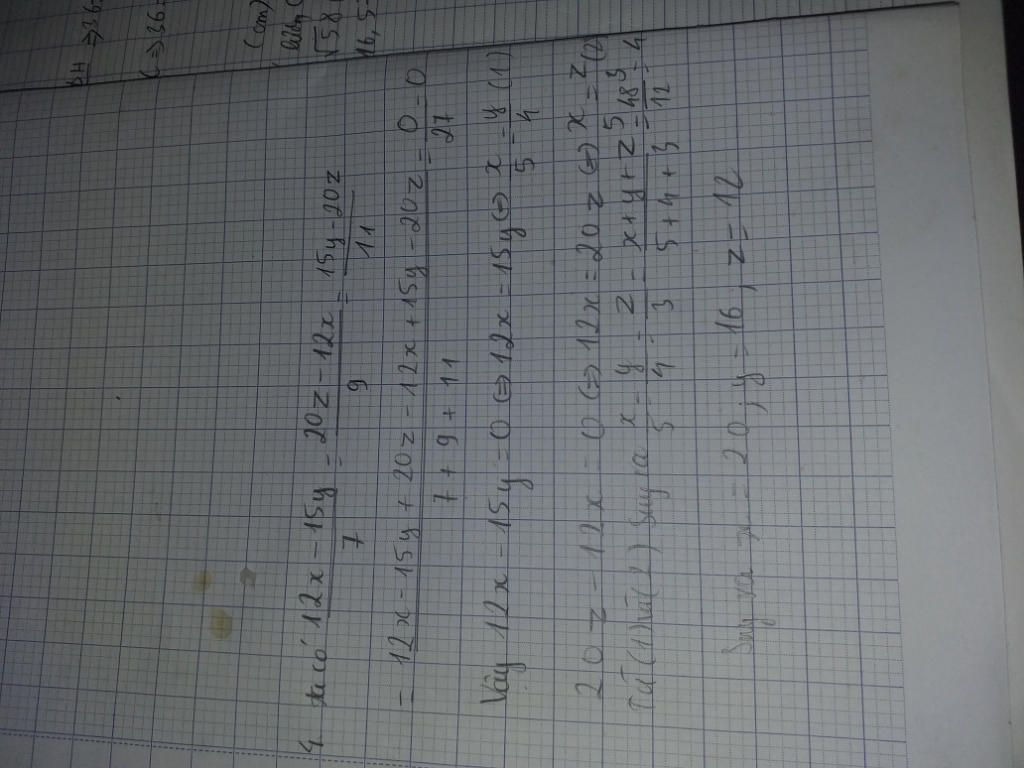 BH => 36
(=> 36
(cm)
√5,8
16,5
4. ta có 12x - 15y / 7 = 20z - 12x / 9 = 15y - 20z / 11
= 12x - 15y + 20z - 12x + 15y - 20z / 7 + 9 + 11 = 0 / 27 = 0
Vậy 12x - 15y = 0 <=> 12x = 15y <=> x / 5 = y / 4 (1)
20z - 12x = 0 <=> 12x = 20z <=> x / 5 = z / 3 (2)
Từ (1) và (2) suy ra x / 5 = y / 4 = z / 3 = x + y + z / 5 + 4 + 3 = 48 / 12 = 4
Suy ra x = 20, y = 16, z = 12